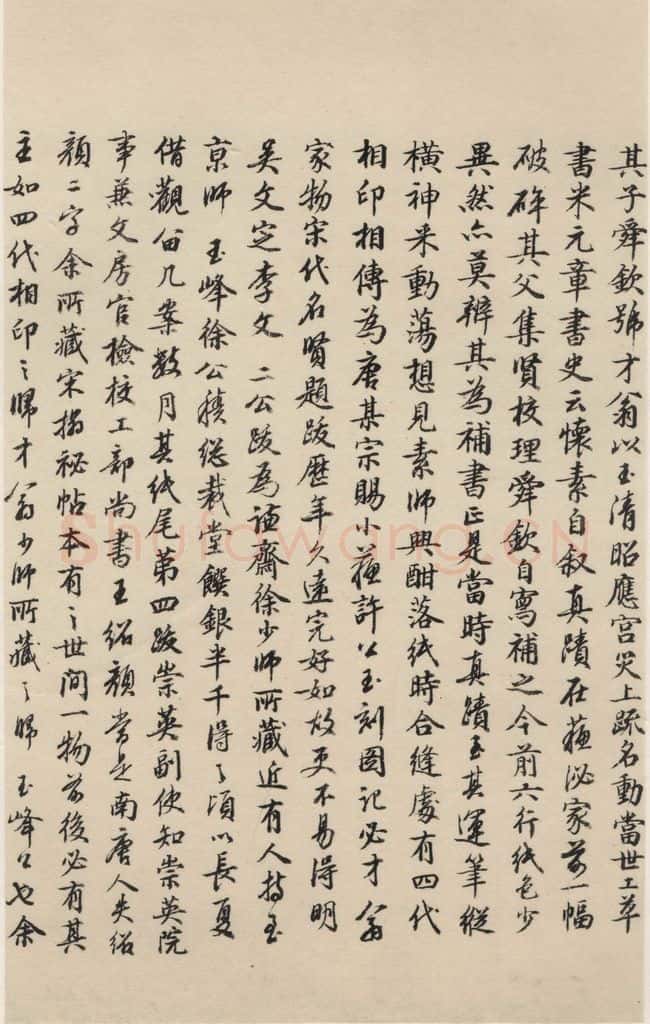 其子舜欽號才翁以玉清昭應宮災上疏名動當世工草
書米元章書史云懷素自叙真蹟在蘇泌家前一幅
破碎其父集賢校理舜欽自寫補之今前六行紙色少
異然亦莫辨其為補書正是當時真蹟至其運筆縱
橫神采動蕩想見素師興酣落紙時合縫處有四代
相印相傳為唐某宗賜小蘇許公玉刻圖記必才翁
家物宋代名賢題跋歷年久遠完好如故更不易得明
吳文定李文 二公跋為謙齋徐少師所藏近有人持至
京師 玉峰徐公積總裁堂饌銀半千得之頃以長夏
借觀留几案數月其紙尾第四跋崇英副使知崇英院
事兼文房官檢校工部尚書王紹顏當是南唐人失紹
顏二字余所藏宋搨祕帖本有之世間一物前後必有其
主如四代相印之歸才翁少師所藏之歸 玉峰公也余
Shufawang.CN